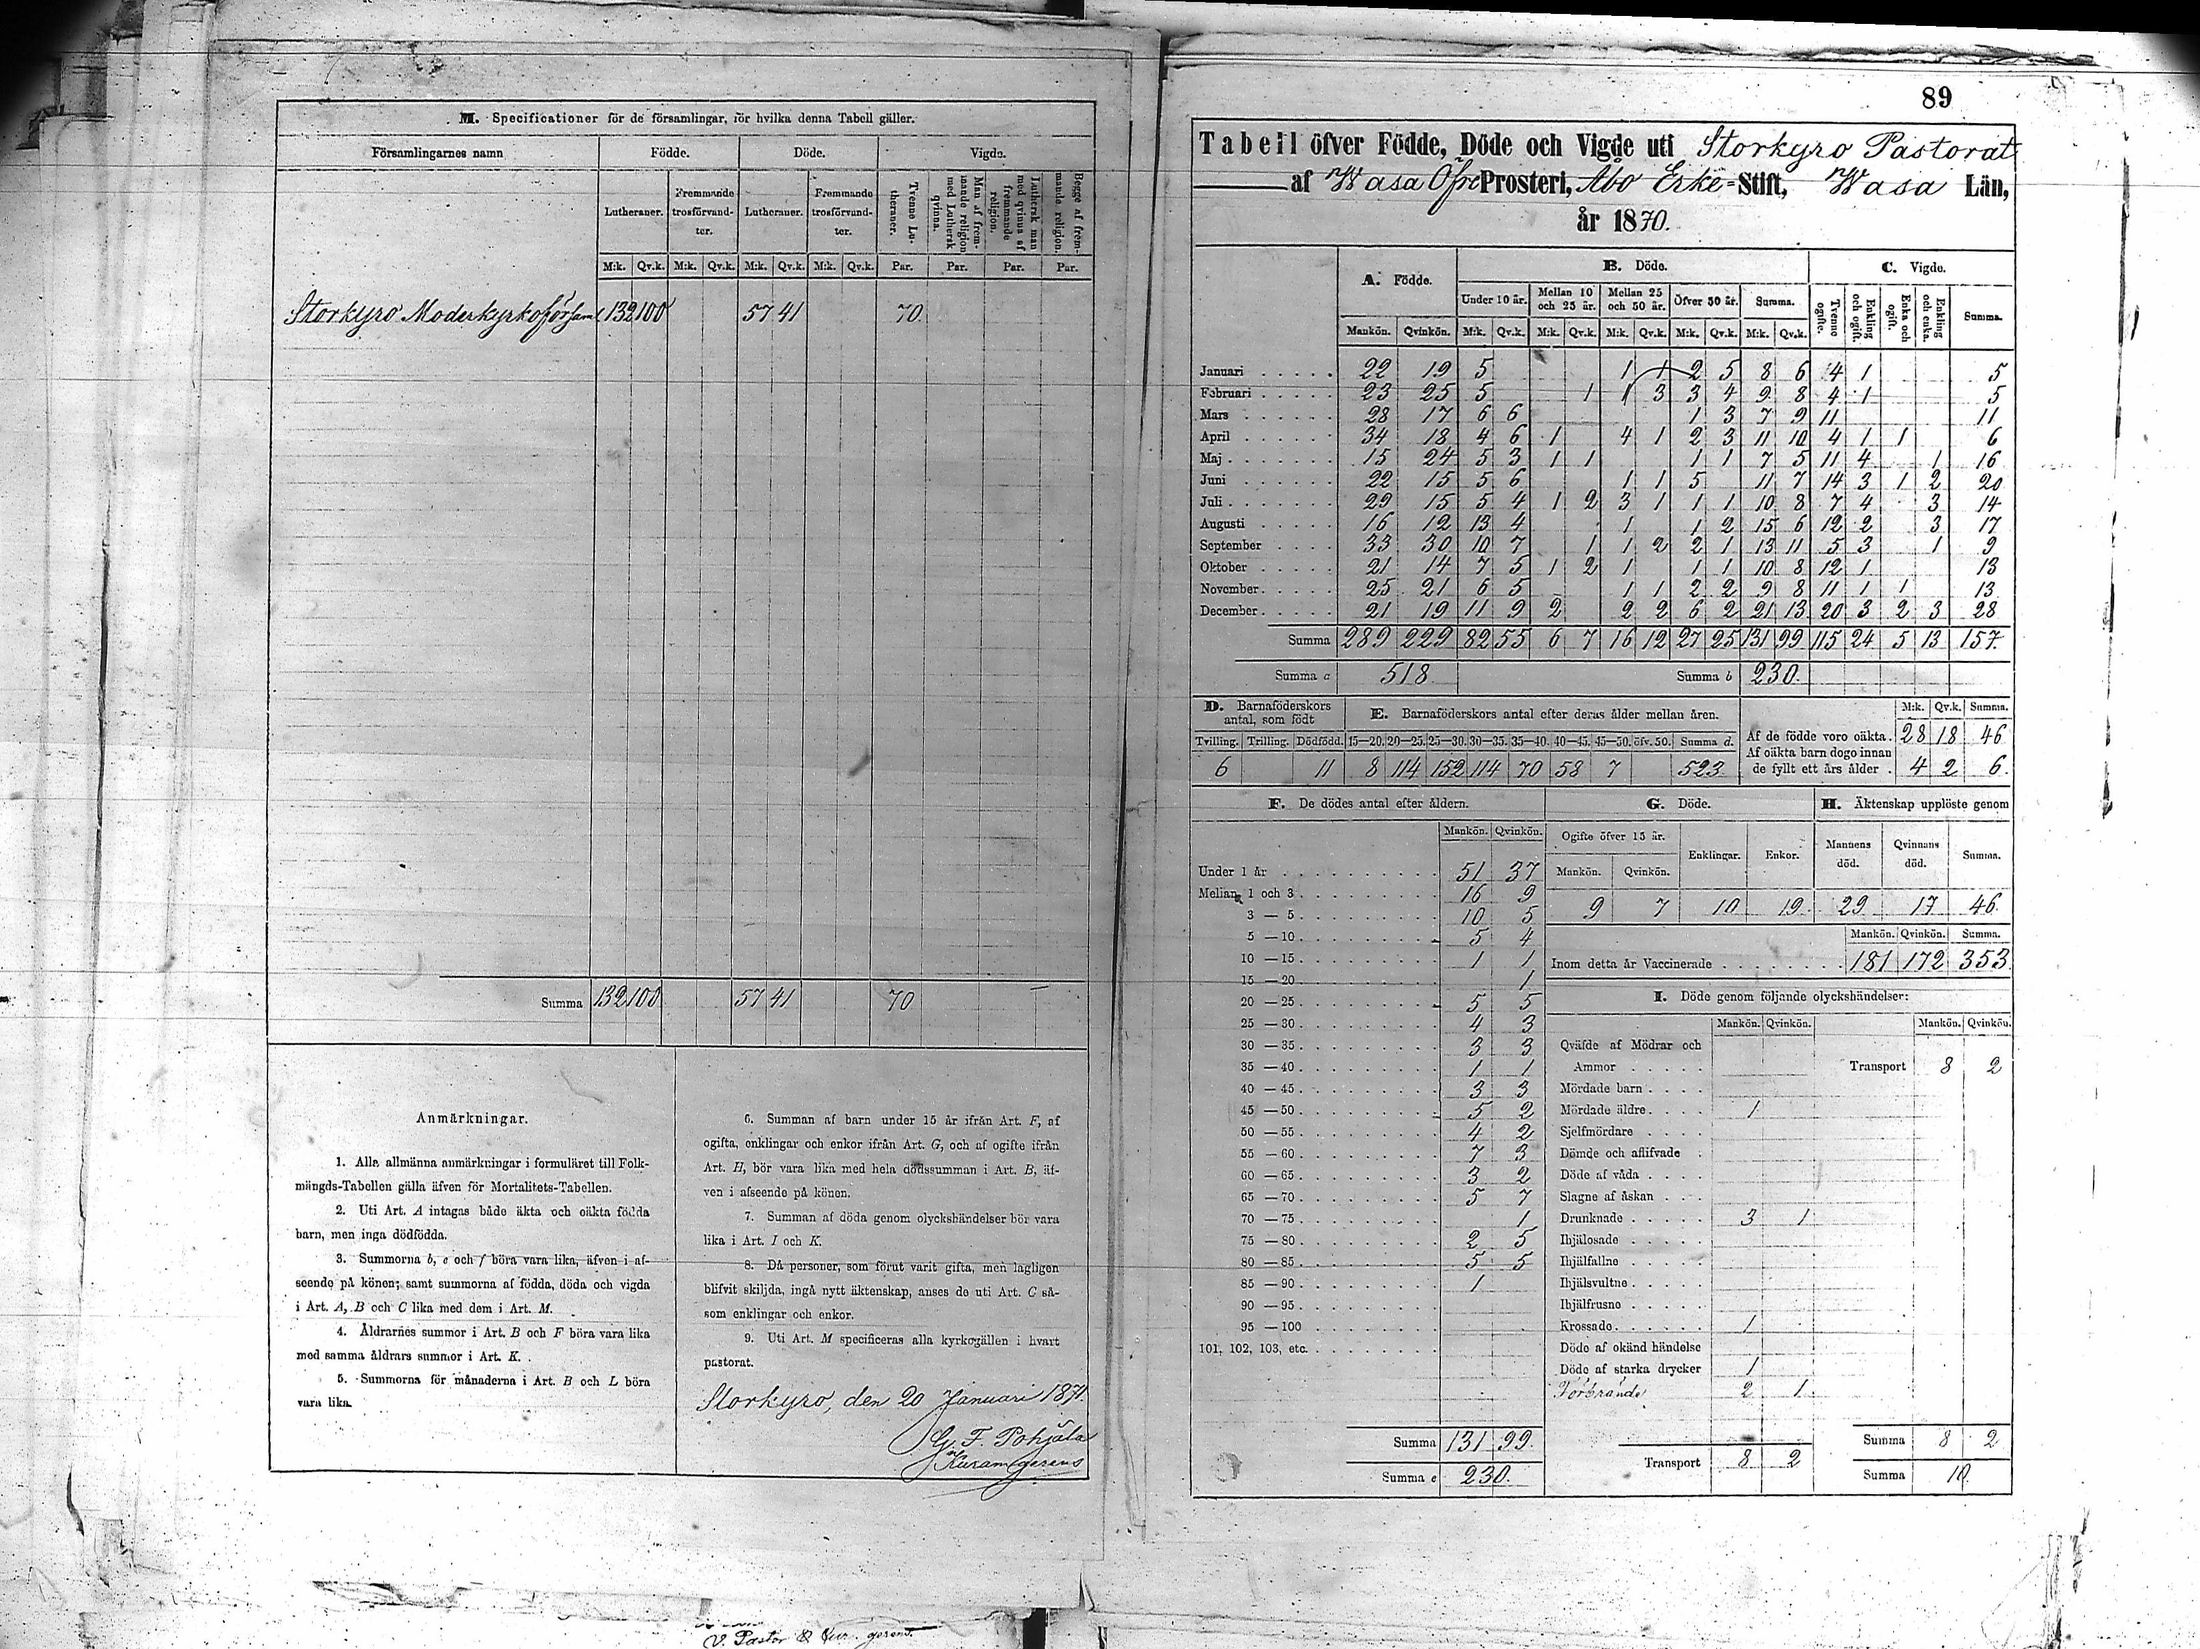 M. Specificationer för de församlingar, för hvilka denna Tabell gäller.
Församlingarnes namn Födde. Döde. Vigda.
Lutheraner. Fremmande trosförvandter. Lutheraner. Fremmande trosförvandter. Tvenne Lutheraner. Man af fremmande religion med Luthersk qvinna. Luthersk man med qvinna af fremmande religion. Begge af fremmande religion.
M:k. Qv.k. M:k. Qv.k. M:k. Qv.k. M:k. Qv.k. Par. Par. Par. Par.
Storkyro Moderkyrkoförsaml 132 100 57 41 70
Summa 132 100 57 41 70
Anmärkningar.
1. Alla allmänna anmärkningar i formuläret till Folk-
mängds-Tabellen gälla äfven för Mortalitets-Tabellen.
2. Uti Art. A intagas både äkta och oäkta födda
barn, men inga dödfödda.
3. Summorna b, e och f böra vara lika, äfven i af-
seende på könen; samt summorna af födda, döda och vigda
i Art. A, B och C lika med dem i Art. M.
4. Åldrarnes summor i Art. B och F böra vara lika
med samma åldrars summor i Art. K.
5. Summorna för månaderna i Art. B och L böra
vara lika.
6. Summan af barn under 15 år ifrån Art. F, af
ogifta, enklingar och enkor ifrån Art. G, och af ogifte ifrån
Art. H, bör vara lika med hela dödssumman i Art. B, äf-
ven i afseende på könen.
7. Summan af döda genom olyckshändelser bör vara
lika i Art. I och K.
8. Då personer, som förut varit gifta, men lagligen
blifvit skiljda, ingå nytt äktenskap, anses de uti Art. C så-
som enklingar och enkor.
9. Uti Art. M specificeras alla kyrkogällen i hvart
pastorat.
Storkyro, den 20 Januari 1871.
G. F. Pohjala
V. Pastor
89
Tabell öfver Födde, Döde och Vigde uti Storkyro Pastorat
af Wasa Öfre Prosteri, Åbo Erke=Stift, Wasa Län,
år 1870.
A. Födde. B. Döde. C. Vigde.
Under 10 år. Mellan 10 och 25 år. Mellan 25 och 50 år. Öfver 50 år. Summa. Tvenne ogifte. Enkling och ogift. Enka och ogift. Enkling och enka. Summa.
Mankön. Qvinkön. M:k. Qv.k. M:k. Qv.k. M:k. Qv.k. M:k. Qv.k. M:k. Qv.k.
Januari 22 19 5 1 1 2 5 8 6 4 1 5
Februari 23 25 5 1 1 3 3 4 9 8 4 1 5
Mars 28 17 6 6 1 3 7 9 11 11
April 34 18 4 6 1 4 1 2 3 11 10 4 1 1 6
Maj 15 24 5 3 1 1 1 1 7 5 11 4 1 16
Juni 22 15 5 6 1 1 5 11 7 14 3 1 2 20
Juli 29 15 5 4 1 2 3 1 1 1 10 8 7 4 3 14
Augusti 16 12 13 4 1 1 2 15 6 12 2 3 17
September 33 30 10 7 1 1 2 2 1 13 11 5 3 1 9
Oktober 21 14 7 5 1 2 1 1 1 10 8 12 1 13
November 25 21 6 5 1 1 2 2 9 8 11 1 1 13
December 21 19 11 9 2 2 2 6 2 21 13 20 3 2 3 28
Summa 289 229 82 55 6 7 16 12 27 25 131 99 115 24 5 13 157.
Summa a 518 Summa b 230.
D. Barnaföderskors antal, som födt
Tvilling. Trilling. Dödfödd.
6 11
E. Barnaföderskors antal efter deras ålder mellan åren.
15—20. 20—25. 25—30. 30—35. 35—40. 40—45. 45—50. öfv. 50. Summa d.
8 114 152 114 70 58 7 523
M:k. Qv.k. Summa.
Af de födde voro oäkta. 28 18 46
Af oäkta barn dogo innan
de fyllt ett års ålder 4 2 6.
F. De dödes antal efter åldern.
Mankön. Qvinkön.
Under 1 år 51 37
Mellan 1 och 3 16 9
3 — 5 10 5
5 — 10 5 4
10 — 15 1 1
15 — 20 1
20 — 25 5 5
25 — 30 4 3
30 — 35 3 3
35 — 40 1 1
40 — 45 3 3
45 — 50 5 2
50 — 55 4 2
55 — 60 7 3
60 — 65 3 2
65 — 70 5 7
70 — 75 1
75 — 80 2 5
80 — 85 5 5
85 — 90 1
90 — 95
95 — 100
101, 102, 103, etc.
Summa 131 99.
Summa e 230.
G. Döde.
Ogifte öfver 15 år. Enklingar. Enkor.
Mankön. Qvinkön.
9 7 10 19
H. Äktenskap upplöste genom
Mannens död. Qvinnans död. Summa.
29 17 46
Mankön. Qvinkön. Summa.
Inom detta år Vaccinerade 181 172 353
I. Döde genom följande olyckshändelser:
Mankön. Qvinkön. Mankön. Qvinkön.
Qväfde af Mödrar och
Ammor
Mördade barn
Mördade äldre 1
Sjelfmördare
Dömde och aflifvade
Döde af våda
Slagne af åskan
Drunknade 3 1
Ihjälosade
Ihjälfallne
Ihjälsvultne
Ihjälfrusne
Krossade 1
Döde af okänd händelse
Döde af starka drycker 1
Förbrände 2 1
Transport 8 2
Transport 8 2
Summa 8 2
Summa 10